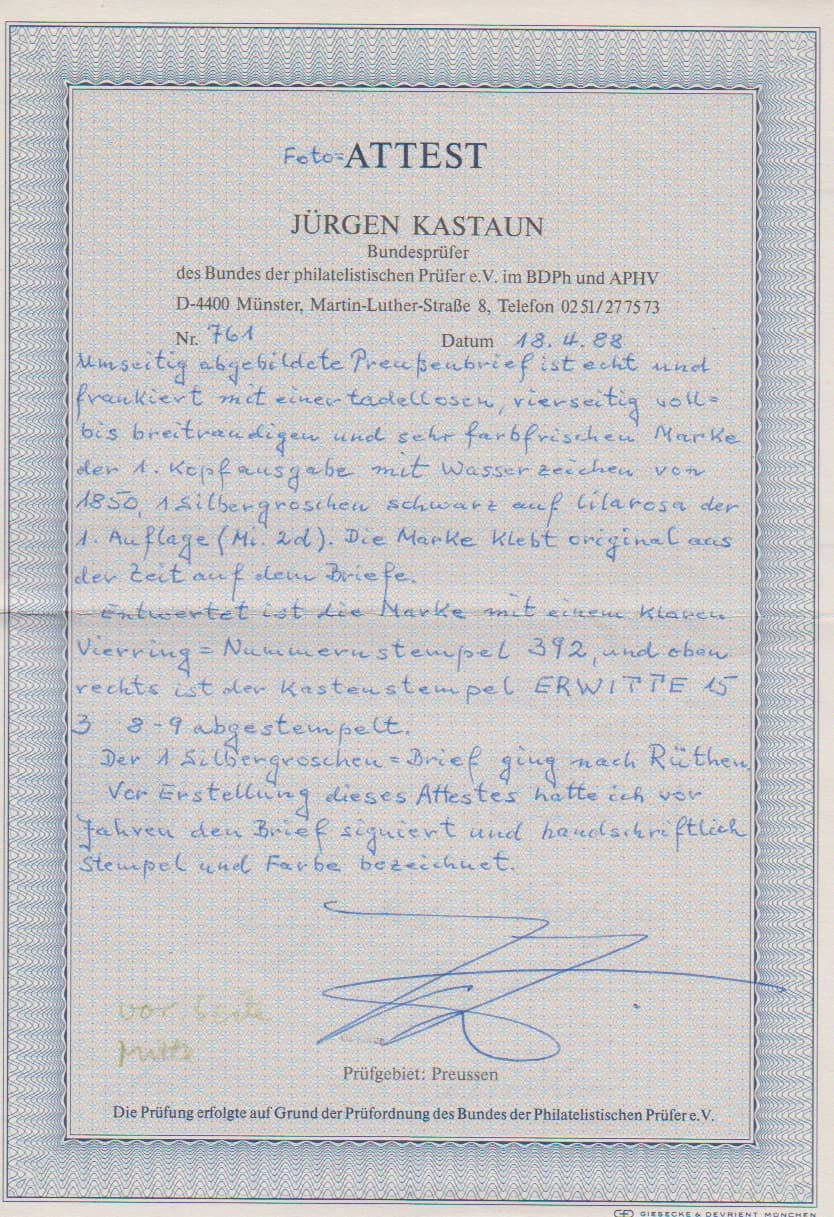 Foto=ATTEST
JÜRGEN KASTAUN
Bundesprüfer
des Bundes der philatelistischen Prüfer e.V. im BDPh und APHV
D-4400 Münster, Martin-Luther-Straße 8, Telefon 02 51/27 75 73
Nr. 761 Datum 18.4.88
Umseitig abgebildete Preußenbrief ist echt und
frankiert mit einer tadellosen, vierseitig voll=
bis breitrandigen und sehr farbfrischen Marke
der 1. Kopfausgabe mit Wasserzeichen von
1850, 1 Silbergroschen schwarz auf lilarosa der
1. Auflage (Mi. 2d). Die Marke klebt original aus
der Zeit auf dem Briefe.
Entwertet ist die Marke mit einem klaren
Vierring=Nummernstempel 392, und oben
rechts ist der Kastenstempel ERWITTE 15
3 8-9 abgestempelt.
Der 1 Silbergroschen=Brief ging nach Rüthen.
Vor Erstellung dieses Attestes hatte ich vor
Jahren den Brief signiert und handschriftlich
Stempel und Farbe bezeichnet.
vor Seite
Mitte
Prüfgebiet: Preussen
Die Prüfung erfolgte auf Grund der Prüfordnung des Bundes der Philatelistischen Prüfer e.V.
GIESECKE & DEVRIENT MÜNCHEN